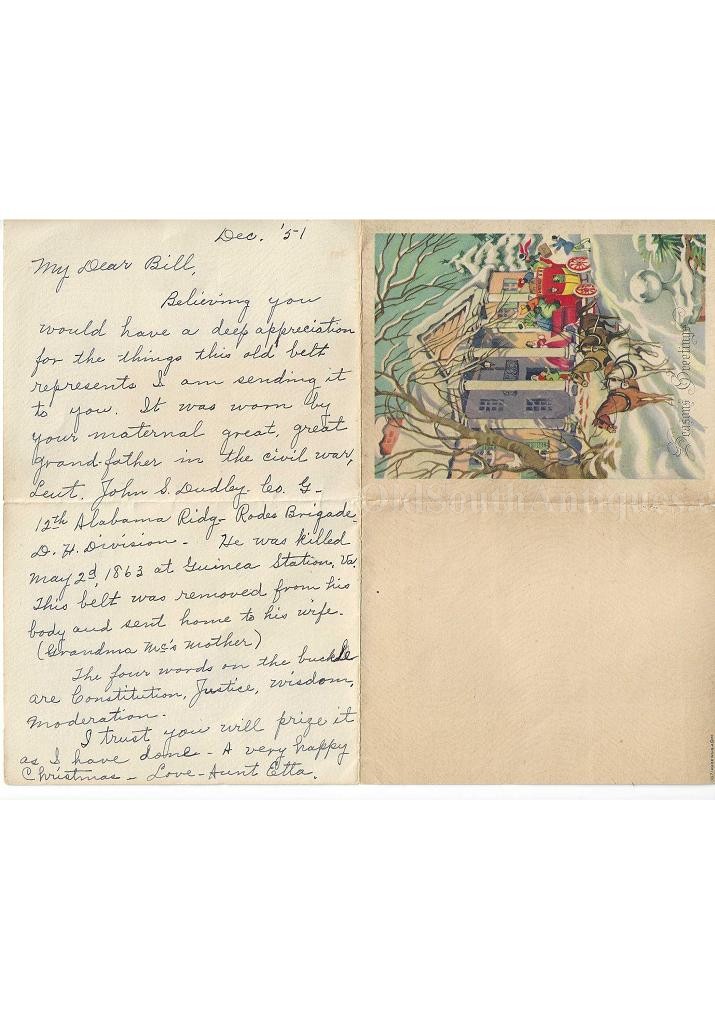 Dec. '51
My Dear Bill,
Believing you
would have a deep appreciation
for the things this old belt
represents I am sending it
to you. It was worn by
your maternal great, great
grand-father in the civil war,
Leut. John S. Dudley. Co. G-
12th Alabama Ridg- Rodes Brigade-
D. H. Division - He was killed
May 2d, 1863 at Guinea Station, Va.
This belt was removed from his
body and sent home to his wife.
(Grandma Mc's Mother)
The four words on the buckle
are Constitution, Justice, wisdom,
moderation.
I trust you will prize it
as I have done - A very happy
Christmas - Love - Aunt Etta.
Seasons Greetings